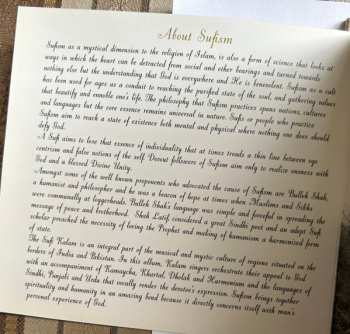 About Sufism
Sufism as a mystical dimension to the religion of Islam, is also a form of science that looks at
ways in which the heart can be detracted from social and other bearings and turned towards
nothing else but the understanding that God is everywhere and He is benevolent. Sufism as a cult
has been used for ages as a conduit to reaching the purified state of the soul, and gathering values
that beautify and ennoble one's life. The philosophy that Sufism practices spans nations, cultures
and languages but the core essence remains universal in nature. Sufis or people who practice
Sufism aim to reach a state of existence both mental and physical where nothing one does should
defy God.
A Sufi aims to lose that essence of individuality that at times trends a thin line between ego
centrism and false notions of the self. Devout followers of Sufism aim only to realize oneness with
God and a blessed Divine Unity.
Amongst some of the well known proponents who advocated the cause of Sufism are Bulleh Shah,
a humanist and philosopher and he was a beacon of hope at times when Muslims and Sikhs
were communally at loggerheads. Bulleh Shah's language was simple and forceful in spreading the
message of peace and brotherhood. Shah Latif considered a great Sindhi poet and an adept Sufi
scholar preached the necessity of loving the Prophet and making of humanism a harmonized form
of state.
The Sufi Kalam is an integral part of the musical and mystic culture of regions situated on the
borders of India and Pakistan. In this album, Kalam singers orchestrate their appeal to God
with an accompaniment of Kamaycha, Khartal, Dholak and Harmonium and the languages of
Sindhi, Punjabi and Urdu that vocally render the devotee's expression. Sufism brings together
spirituality and humanity in an amazing bond because it directly concerns itself with man's
personal experience of God.